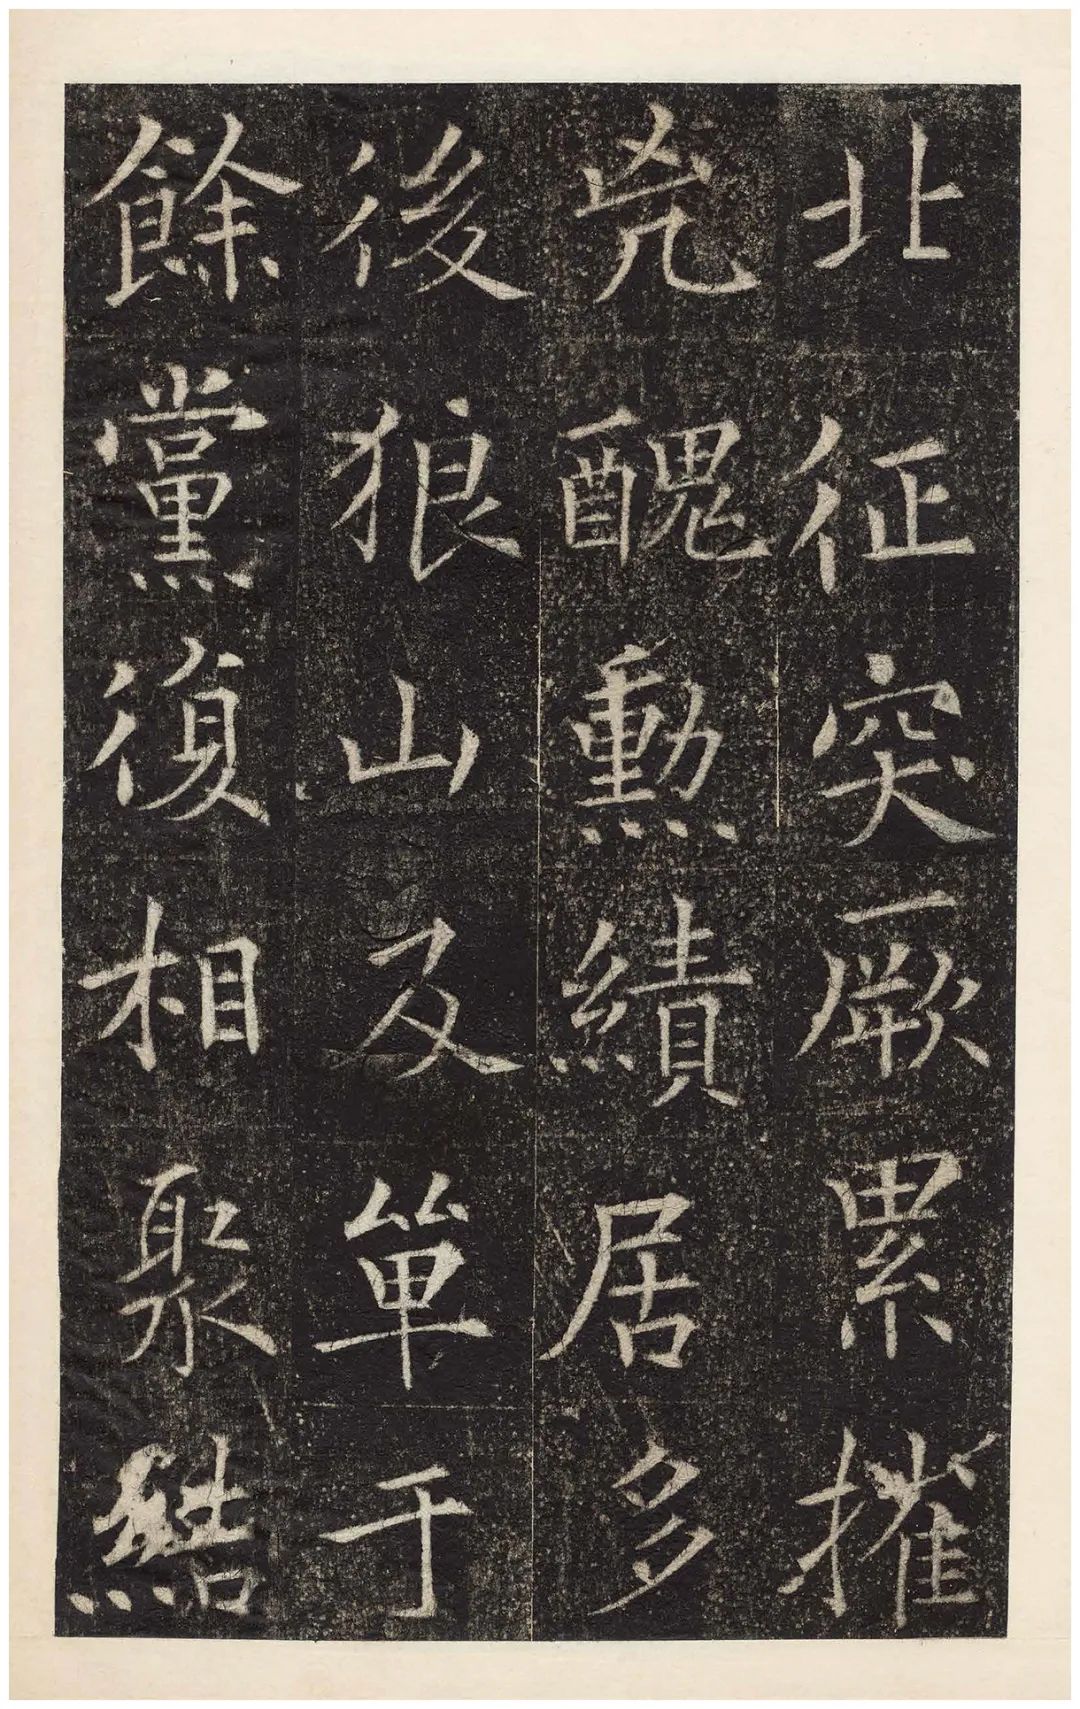 北征突厥累摧
兇醜勳績居多
後狼山及單于
餘黨復相聚結